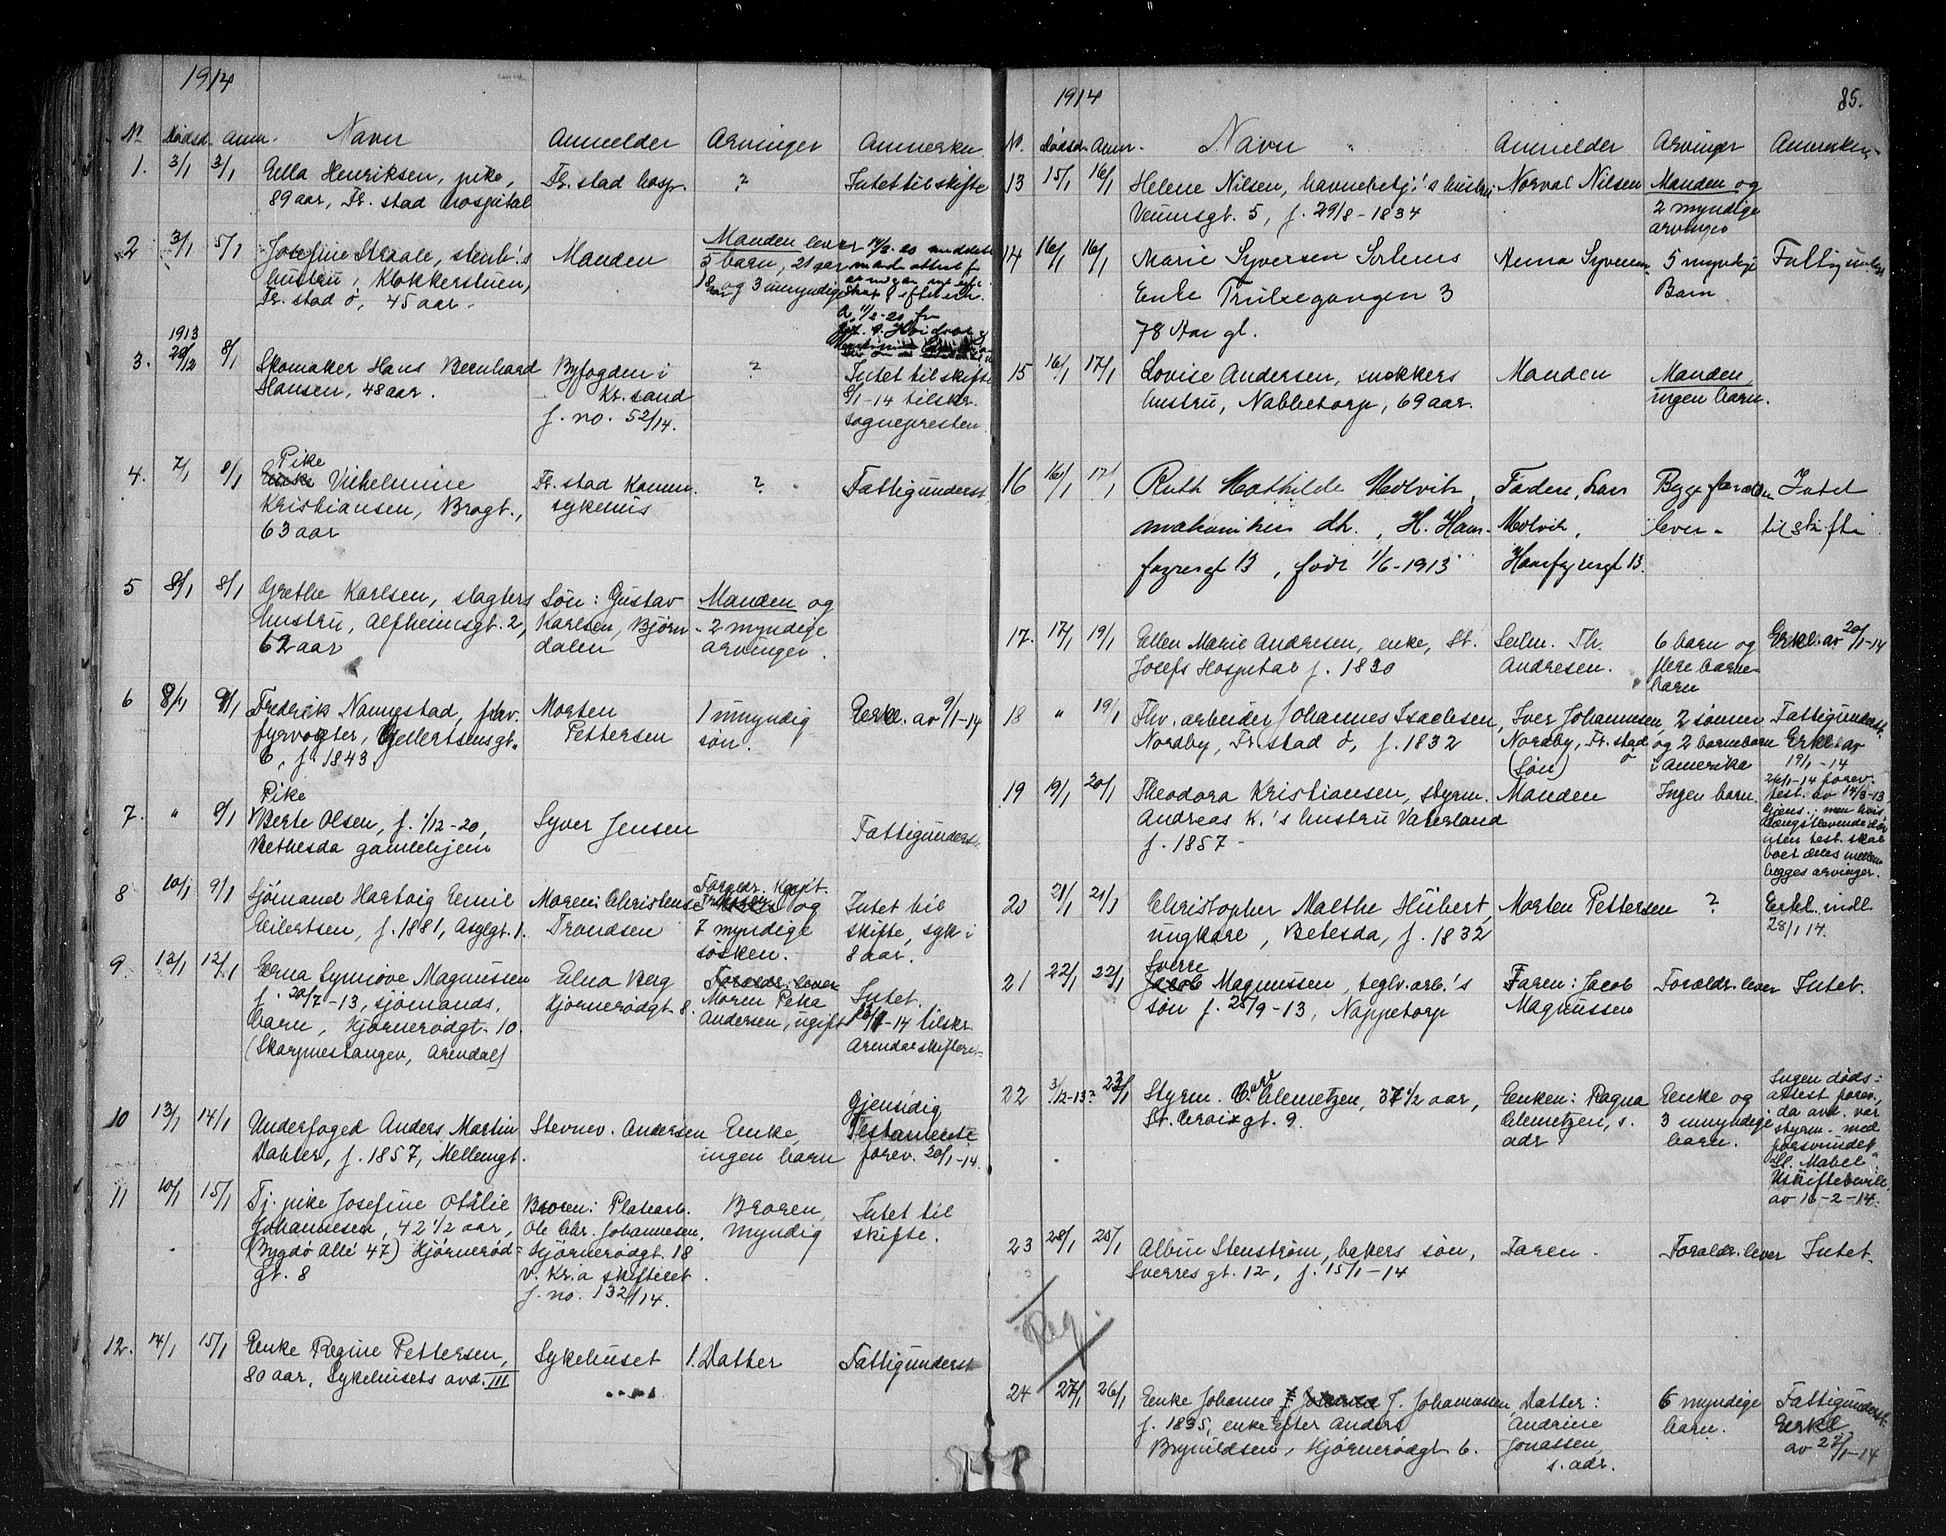 1914
No Dødsd. Anm. Navn Anmelder Arvinger Anmerkn.
1. 3/1 3/1 Ella Henriksen, pike, Fr.stad hosp. ? Intet til skifte
89 aar, Fr.stad hospital
2 3/1 5/1 Josefine Skaale, stenh.'s Manden Manden lever
hustru, Klokkerstuen, 5 barn, 21 aar
Fr.stad ö, 45 aar. 18 aar og 3 umyndige
3. 1913 29/12 8/1 Skomaker Hans Bernhard Byfogden i ? Intet til skifte
Hansen, 48 aar. Kr.sand 8/1-14 tilskr.
j. no. 52/14. sognepresten
4. 7/1 8/1 Pike
Vilhelmine Fr.stad Komm. ? Fattigunderst.
Kristiansen, Brogt., sykehus
63 aar
5 8/1 8/1 Grethe Karlsen, slagters Søn: Gustav Manden og
hustru, Alfheimsgt. 2, Karlsen, Bjørn- 2 myndige
62 aar dalen arvinger.
6 8/1 9/1 Fredrik Nannestad, fhv. Morten 1 umyndig Erkl. av 9/1-14
fyrvogter, Gellertsensgt. Pettersen søn.
6, f. 1843.
7. " 9/1 Pike
Berte Olsen, f. 1/12-20, Syver Jensen Fattigunderst.
Bethesda gamlehjem
8 10/1 9/1 Sjömand Hartvig Emil Moren: Christense Foraldr. Kapt. Intet til
Eilertsen, f. 1881, Asylgt. 1. Trondsen og skifte, syk i
7 myndige 8 aar.
søsken.
9 13/1 12/1 Erna Synnöve Magnussen Edna Berg Foraldr. lever Intet.
f. 20/7-13, sjömands, Hjørnerødgt. 8. Moren Peka
barn, Hjørnerødgt. 10. Andersen, ugift -14 tilskr.
(Skarpnestangen, Arendal) Arendal skifteret.
10 13/1 14/1 Underfoged Anders Martin Stevnev. Andersen Enke, Gjensidig
Dahler, f. 1857, Mellemgt. ingen barn Testamente
forev. 20/1-14.
11 10/1 15/1 Tj.pike Josefine Otilie Broren: Platearb. Broren, Intet til
Johannesen, 42 1/2 aar, Ole Chr. Johannesen, myndig skifte.
(Bygdö Allé 47) Hjørnerød- Hjørnerødgt. 18
gt. 8 v. Kr.a skifteret
j. no. 132/14.
12. 14/1 15/1 Enke Regine Pettersen, Sykehuset 1. Datter Fattigunderst.
80 aar, Sykehusets avd. III
1914 85.
No. Dødsd. Anm. Navn Anmelder Arvinger Anmerkn.
13 15/1 16/1 Helene Nilsen, havnebetj.'s hustru Norval Nilsen Manden og
Veumsgt. 5, f. 29/8-1834 2 myndige
arvinger
14 16/1 16/1 Marie Syversen Anna Syversen 5 myndige Fattigunderst.
Enke Trulsegangen 3 Barn
78 Aar gl.
15 16/1 17/1 Lovise Andersen, snekkers Manden Manden,
hustru, Nabbetorp, 69 aar. ingen barn.
16 16/1 17/1 Ruth Mathilde Molvik, Faderen, Begge foraldre Intet
mekaniker dtr., H. Haar- Molvik, lever til skifte
fagresgt 13, født 1/6-1913 Haarfagresgt 13.
17. 17/1 19/1 Ellen Marie Andresen, enke, St. Seilm. Th. 6 barn og Erkl. av 20/1-14
Josefs Hospital f. 1830 Andresen. flere barne-
barn
18 " 19/1 Fhv. arbeider Johannes Isachsen, Iver Johannesen, 2 sønner Fattigunderst.
Nordby, Fr.stad ö, f. 1832 Nordby, Fr.stad ö og 2 barnebarn Erkl. av
(Søn) i Amerika 19/1-14
19 19/1 20/1 Theodora Kristiansen, styrm. Manden Ingen barn. 26/1-14 forev.
Andreas K.'s hustru Vaterland test. av 14/3-13,
f. 1857- gjens., men hvis
længstlevende dør
uten test. skal
boet deles mellem
begges arvinger.
20 21/1 21/1 Christopher Malthe Hübert, Morten Pettersen ? Erkl. indl.
ungkare, Betesda, f. 1832 28/1 14.
21 22/1 22/1 Sverre
Jacob Magnussen, teglv.arb.'s Faren: Jacob Foraldr. lever Intet.
søn f. 25/9-13, Nappetorp Magnussen
22 3/12-13? 23/1 Styrm. Carl Clemetzen, 37 1/2 aar, Enken: Ragna Enke og Ingen døds-
St. Croixgt. 9. Clemetzen, s. 3 umyndige attest forev.,
adr barn. da avd. var
styrm. med
forsvundet
"Sl. Mabel".
Uskiftebevill.
av 16-2-14.
23 25/1 25/1 Albin Stenström, bakers søn, Faren. Foraldr. lever Intet.
Sverres gt. 12, f. 15/1-14
Reg.
24 27/1 26/1 Enke Johanne J. Johannesen, Datter: 6 myndige Fattigunderst.
f. 1835, enke efter Anders Andrine barn. Erkl.
Brynildsen, Hjørnerødgt 6. Jonassen, av 27/1-14
s. adr.